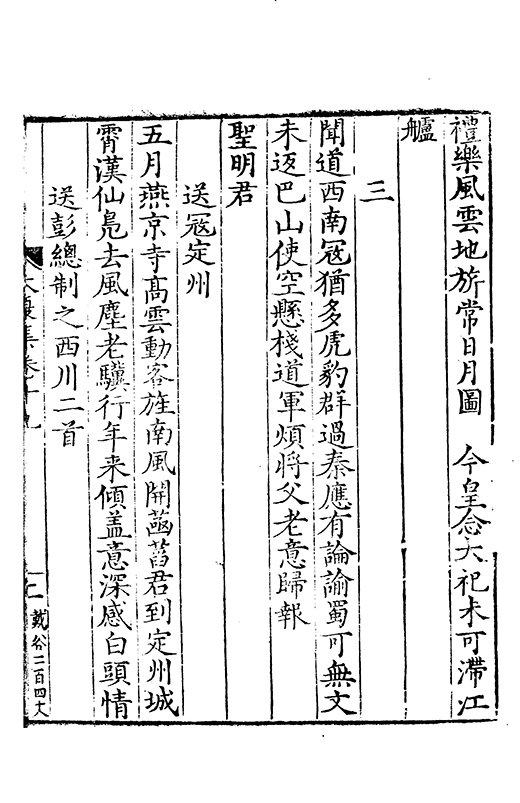 禮樂風雲地旂常日月圖　今皇念大祀未可滯江
艫
三
聞道西南冦猶多虎豹群過秦應有論諭蜀可無文
未返巴山使空懸棧道軍煩將父老意歸報
聖明君
送冦定州
五月燕京寺髙雲動客旌南風開菡萏君到定州城
霄漢仙鳧去風塵老驥行年来傾盖意深感白頭情
送彭總制之西川二首
大復集卷十九
二
戴谷二百四丈